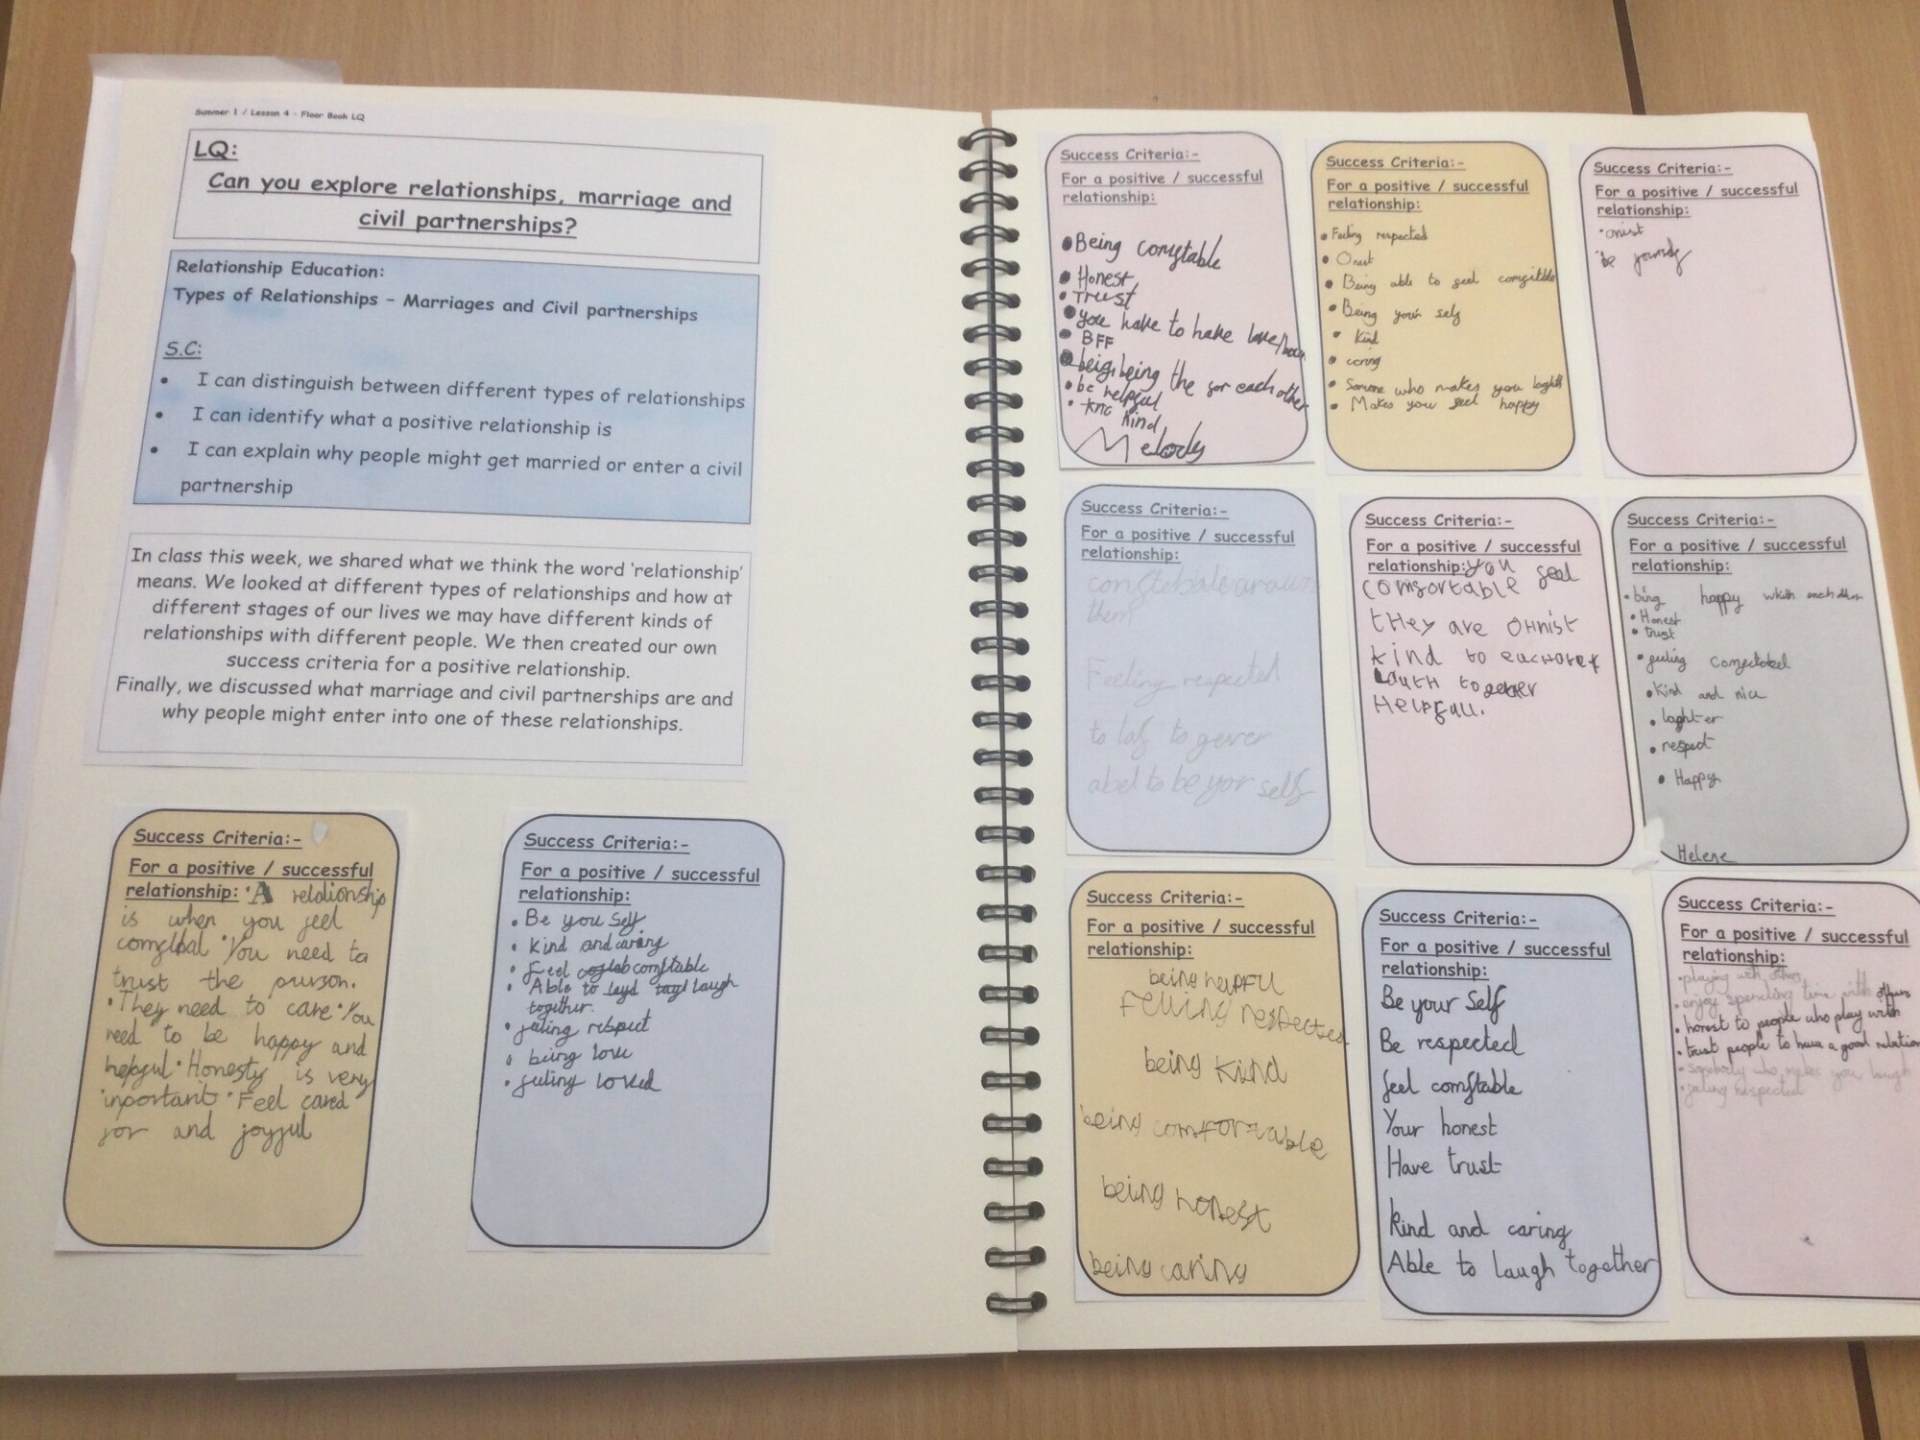 Summer 1 / Lesson 4 - Floor Book LQ
LQ:
Can you explore relationships, marriage and
civil partnerships?
Relationship Education:
Types of Relationships – Marriages and Civil partnerships
S.C:
• I can distinguish between different types of relationships
• I can identify what a positive relationship is
• I can explain why people might get married or enter a civil
partnership
In class this week, we shared what we think the word 'relationship'
means. We looked at different types of relationships and how at
different stages of our lives we may have different kinds of
relationships with different people. We then created our own
success criteria for a positive relationship.
Finally, we discussed what marriage and civil partnerships are and
why people might enter into one of these relationships.
Success Criteria:-
For a positive / successful
relationship: • A relationship
is when you feel
comfbal • You need to
trust the purson.
• They need to care • You
need to be happy and
helpful • Honesty is very
inportant • Feel cared
for and joyful
Success Criteria:-
For a positive / successful
relationship:
• Be you self
• kind and caring
• Feel comftable
• Able to laugh
together.
• feling respect
• being love
• feling loved
Success Criteria:-
For a positive / successful
relationship:
• Being comftable
• Honest
• Trust
• you have to have love
• BFF
• being the for each other
• be helpful
• kind
Melody
Success Criteria:-
For a positive / successful
relationship:
• Feeling respected
• Onest
• Being able to feel
• Being your self
• kind
• caring
• Someone who makes you
• Makes you feel happy
Success Criteria:-
For a positive / successful
relationship:
• onist
be
Success Criteria:-
For a positive / successful
relationship:
them
Feeling respected
to laf to gever
abel to be yor self
Success Criteria:-
For a positive / successful
relationship: you
comfortable feel
tHey are oHnist
kind to
together
HeLpfull.
Success Criteria:-
For a positive / successful
relationship:
• being happy with each other
• Honest
• trust
• feeling
• kind and nice
• laghter
• respect
• Happy
Helene
Success Criteria:-
For a positive / successful
relationship:
being helpful
Felling respected
being kind
being comfortable
being honest
being caring
Success Criteria:-
For a positive / successful
relationship:
Be your self
Be respected
feel comftable
Your honest
Have trust
kind and caring
Able to laugh together
Success Criteria:-
For a positive / successful
relationship:
• playing with others
• enjoy spending time with others
• honest to people who play with
• trust people to have a good relation
• sombody who makes you laugh
• feling respected